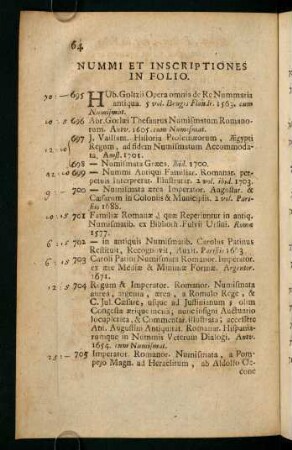 64
NUMMI ET INSCRIPTIONES
IN FOLIO.
695 HUb. Golzii Opera omnia de Re Nummaria
antiqua. 5 vol. Brugis Flandr. 1563. cum
Numismat.
696 Abr. Gorlæi Thesaurus Numismatum Romano-
rum. Antv. 1605. cum Numismat.
697 J. Vaillant. Historia Ptolemæorum, Ægypti
Regum, ad fidem Numismatum Accommoda-
ta, Amst. 1701.
698 — Numismata Græca. Ibid. 1700.
699 — Nummi Antiqui Familiar. Romanar. per-
petuis Interpretat. Illustratæ. 2 vol. ibid. 1703.
700 — Numismata ærea Imperator. Augustar. &
Cæsarum in Coloniis & Municipiis. 2 vol. Pari-
siis 1688.
701 Familiæ Romanæ, quæ Reperiuntur in antiq.
Numismatib. ex Biblioth. Fulvii Ursini. Romæ
1577.
702 — in antiquis Numismatib. Carolus Patinus
Restituit, Recognovit, Auxit. Parisiis 1663.
703 Caroli Patini Numismata Romanor. Imperator.
ex ære Mediæ & Minimæ Formæ. Argentor.
1671.
704 Regum & Imperator. Romanor. Numismata
aurea, argentea, ærea, a Romulo Rege, &
C. Jul. Cæsare, usque ad Justinianum; olim
Congesta ærique incisa; nunc insigni Auctuario
locupletata, & Commentar. illustrata; accessere
Ant. Augustini Antiquitat. Romanar. Hispania-
rumque in Nummis Veterum Dialogi. Antv.
1654. cum Numismat.
705 Imperator. Romanor. Numismata, a Pom-
pejo Magn. ad Heraclium, ab Adolfo Oc-
cone